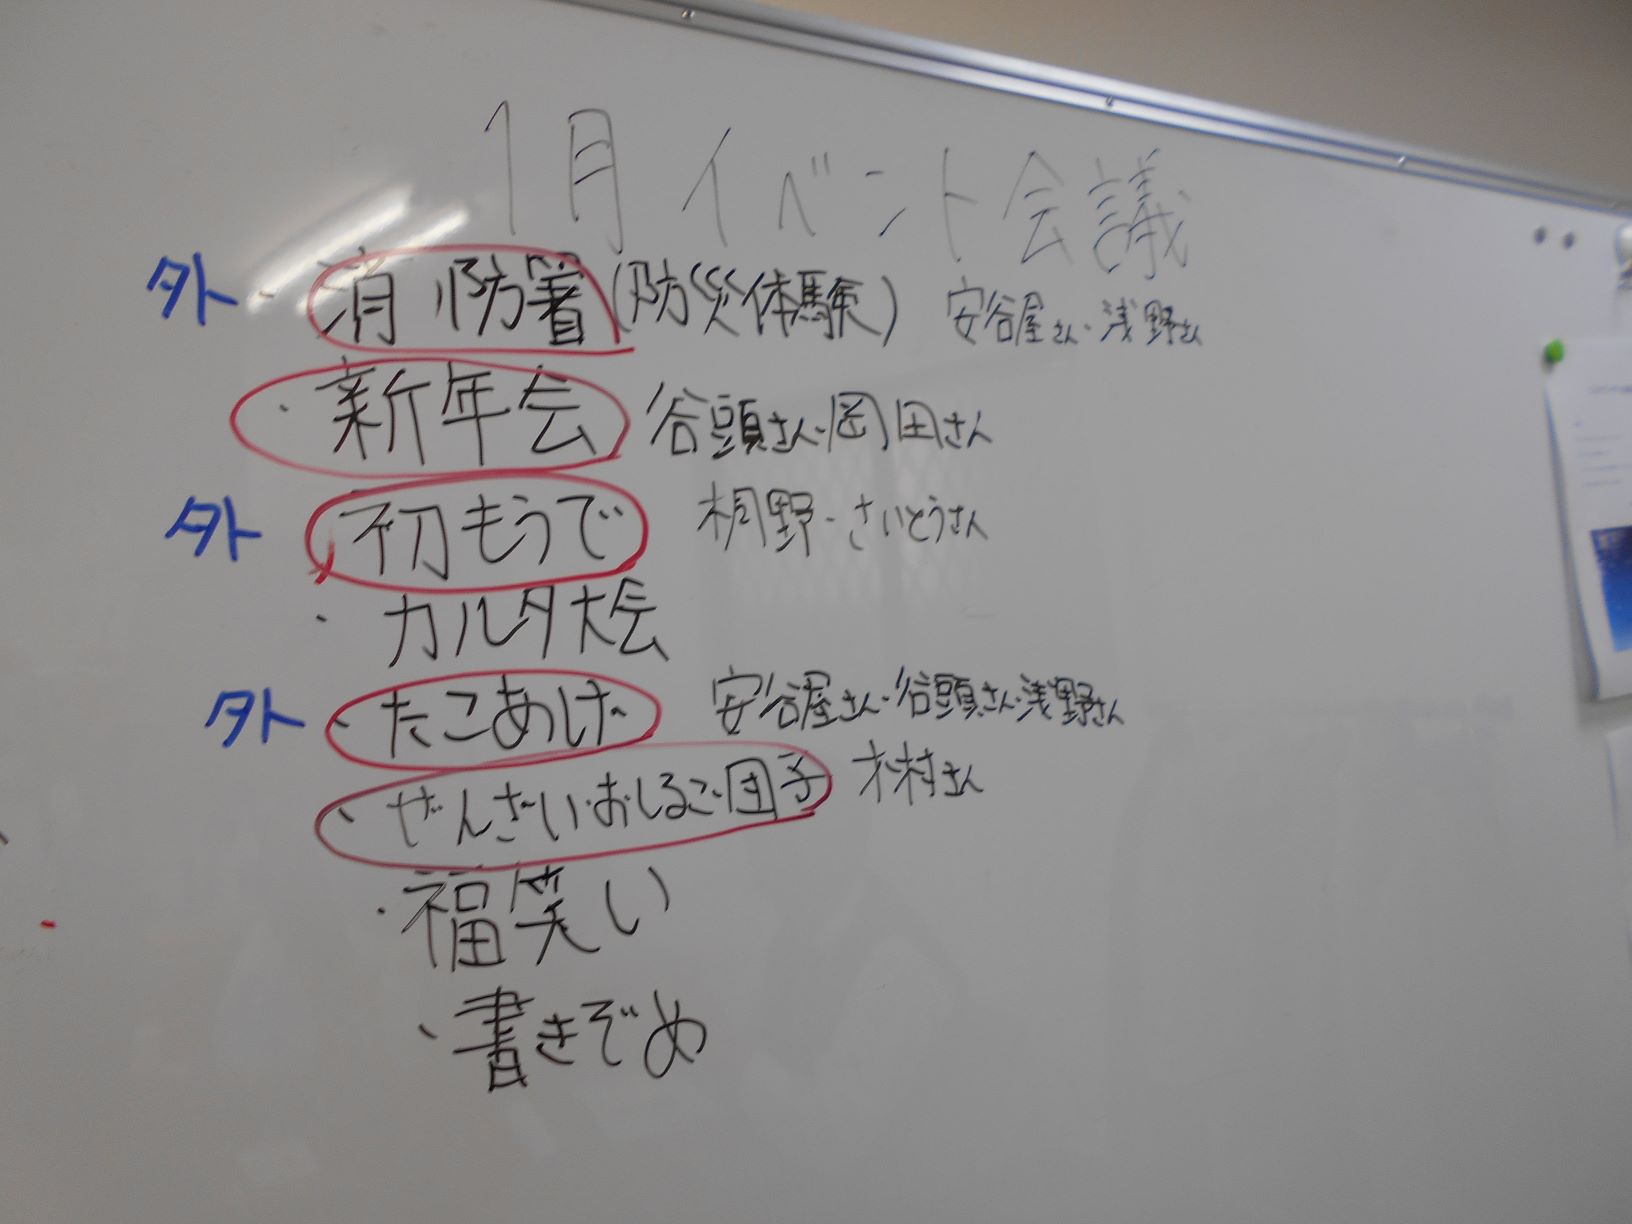 1月イベント会議
外・消防署(防災体験) 安谷屋さん・浅野さん
・新年会 谷頭さん・岡田さん
外・初もうで 桐野・さいとうさん
・カルタ大会
外・たこあげ 安谷屋さん・谷頭さん・浅野さん
・ぜんざい・おしるこ・団子 木村さん
・福笑い
・書きぞめ